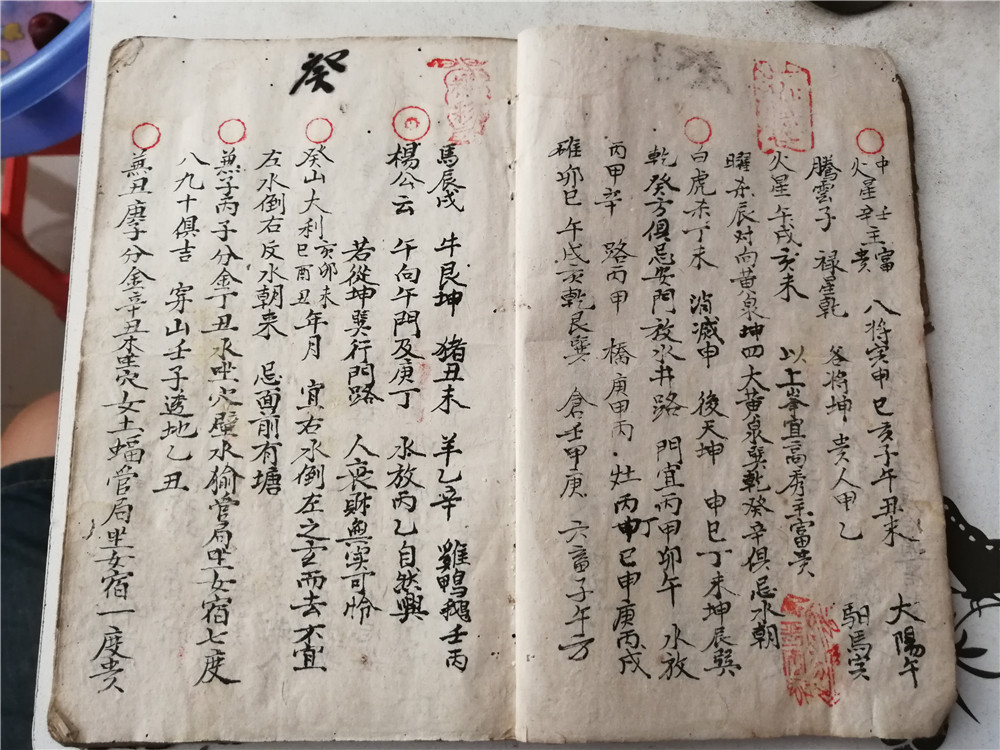 火星辛主貴 中壬主富 八将寅申巳亥子午丑未 大陽午
騰雲子 禄星乾 谷将坤 貴人甲乙 馹馬寅
火星午戌亥未 以上峯宜高秀主富貴
曜杀辰对向黄泉坤四大黄泉巽乾癸辛俱忌水朝
白虎杀丁未 消滅申 後天坤 申巳丁未坤辰巽
乾癸方俱忌安門放水井路 門宜丙甲卯午 水放
丙甲辛 路丙甲 橋庚甲丙 灶丙申丁巳申庚丙戌
碓卯巳午戌亥乾艮巽 倉壬甲庚 六畜子午方
癸
馬辰戌 牛艮坤 猪丑未 羊乙辛 雞鴨鵝壬丙
楊公云 午向午門及庚丁 水放丙乙自然興
若從坤巽行門路 人丧財無实可怜
癸山大利亥卯未巳酉丑年月 宜右水倒左之玄而去不宜
左水倒右反水朝来 忌面前有塘
兼子丙子分金丁丑水坐穴壁水㺄管局坐女宿七度
八九十俱吉 穿山壬子透地乙丑
兼丑庚子分金辛丑木坐穴女土蝠管局坐女宿一度貴